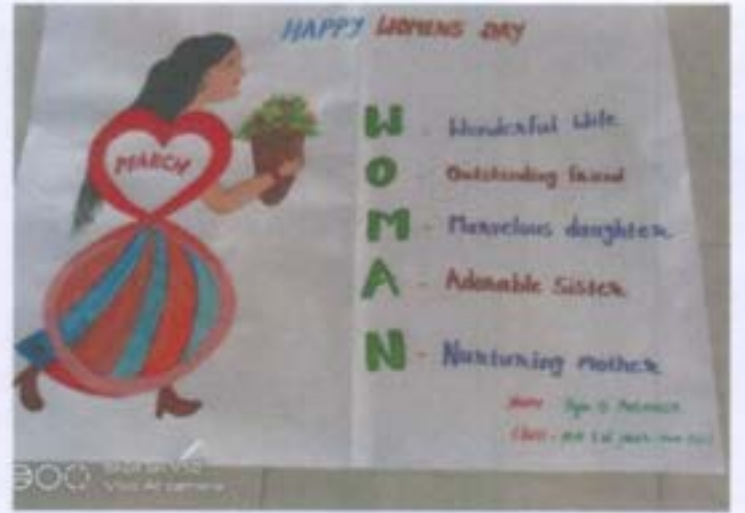 HAPPY WOMENS DAY
MARCH
W - Wonderful Wife
O - Outstanding friend
M - Marvelous daughter
A - Adorable Sister
N - Nurturing Mother
Name
Class -
Vivo AI camera